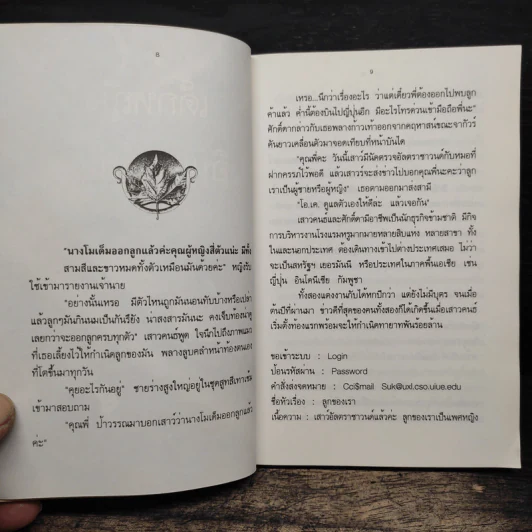 8
"นางโมเด็มออกลูกแล้วค่ะคุณผู้หญิงสี่ตัวแน่ะ มีทั้ง
สามสีและขาวหมดทั้งตัวเหมือนมันด้วยค่ะ" หญิงรับ
ใช้เข้ามารายงานเจ้านาย
"อย่างนั้นเหรอ มีตัวไหนถูกมันนอนทับบ้างหรือเปล่า
แล้วลูกๆมันกินนมเป็นกันรึยัง น่าสงสารมันนะ คงเจ็บท้องน่าดู
เลยกว่าจะออกลูกครบทุกตัว" เสาวคนธ์พูด ใจนึกไปถึงภาพแมว
ที่เธอเลี้ยงไว้ให้กำเนิดลูกของมัน พลางลูบคลำหน้าท้องตนเอง
ที่โตขึ้นมาทุกวัน
"คุยอะไรกันอยู่" ชายร่างสูงใหญ่อยู่ในชุดสูทสีเทาเข้ม
เข้ามาสอบถาม
"คุณพี่ ป้าวรรณมาบอกเสาร์ว่านางโมเด็มออกลูกแล้ว
ค่ะ"
9
เหรอ...นึกว่าเรื่องอะไร ว่าแต่เดี๋ยวพี่ต้องออกไปพบลูก
ค้าแล้ว ค่ำนี้ต้องบินไปญี่ปุ่นอีก มีอะไรโทรด่วนเข้ามือถือพี่นะ"
ศักดิ์ดากล่าวกับเธอพลางก้าวเท้าออกจากคฤหาสน์ขณะจากัวร์
คันยาวเคลื่อนตัวมาจอดเทียบที่หน้าบันได
"คุณพี่คะ วันนี้เสาวร์มีนัดตรวจอัลตราซาวนด์กับหมอที่
ฝากครรภ์ไว้พอดี แล้วเสาวร์จะส่งข่าวไปบอกคุณพี่นะคะว่าลูก
เราเป็นผู้ชายหรือผู้หญิง" เธอตามออกมาส่งสามี
"โอ.เค. ดูแลตัวเองให้ดีล่ะ แล้วเจอกัน"
เสาวคนธ์และศักดิ์ดามีอาชีพเป็นนักธุรกิจข้ามชาติ มีกิจ
การบริหารงานโรงแรมหรูมากมายหลายสิบแห่ง หลายสาขา ทั้ง
ในและนอกประเทศ ต้องเดินทางเข้าไปต่างประเทศเสมอ ไม่ว่า
จะเป็นสหรัฐฯ เยอรมันนี หรือประเทศในภาคพื้นเอเชีย เช่น
ญี่ปุ่น อินโดนีเซีย กัมพูชา
ทั้งสองแต่งงานกันได้หกปีกว่า แต่ยังไม่มีบุตร จนเมื่อ
ต้นปีที่ผ่านมา ข่าวดีที่สุดของคนทั้งสองก็ได้เกิดขึ้นเมื่อเสาวคนธ์
เริ่มตั้งท้องแรกพร้อมจะให้กำเนิดทายาทพันร้อยล้าน
ขอเข้าระบบ : Login
ป้อนรหัสผ่าน : Password
คำสั่งส่งจดหมาย : Cci$mail Suk@uxl.cso.uiue.edu
ชื่อหัวเรื่อง : ลูกของเรา
เนื้อความ : เสาว์อัลตราซาวนด์แล้วค่ะ ลูกของเราเป็นเพศหญิง